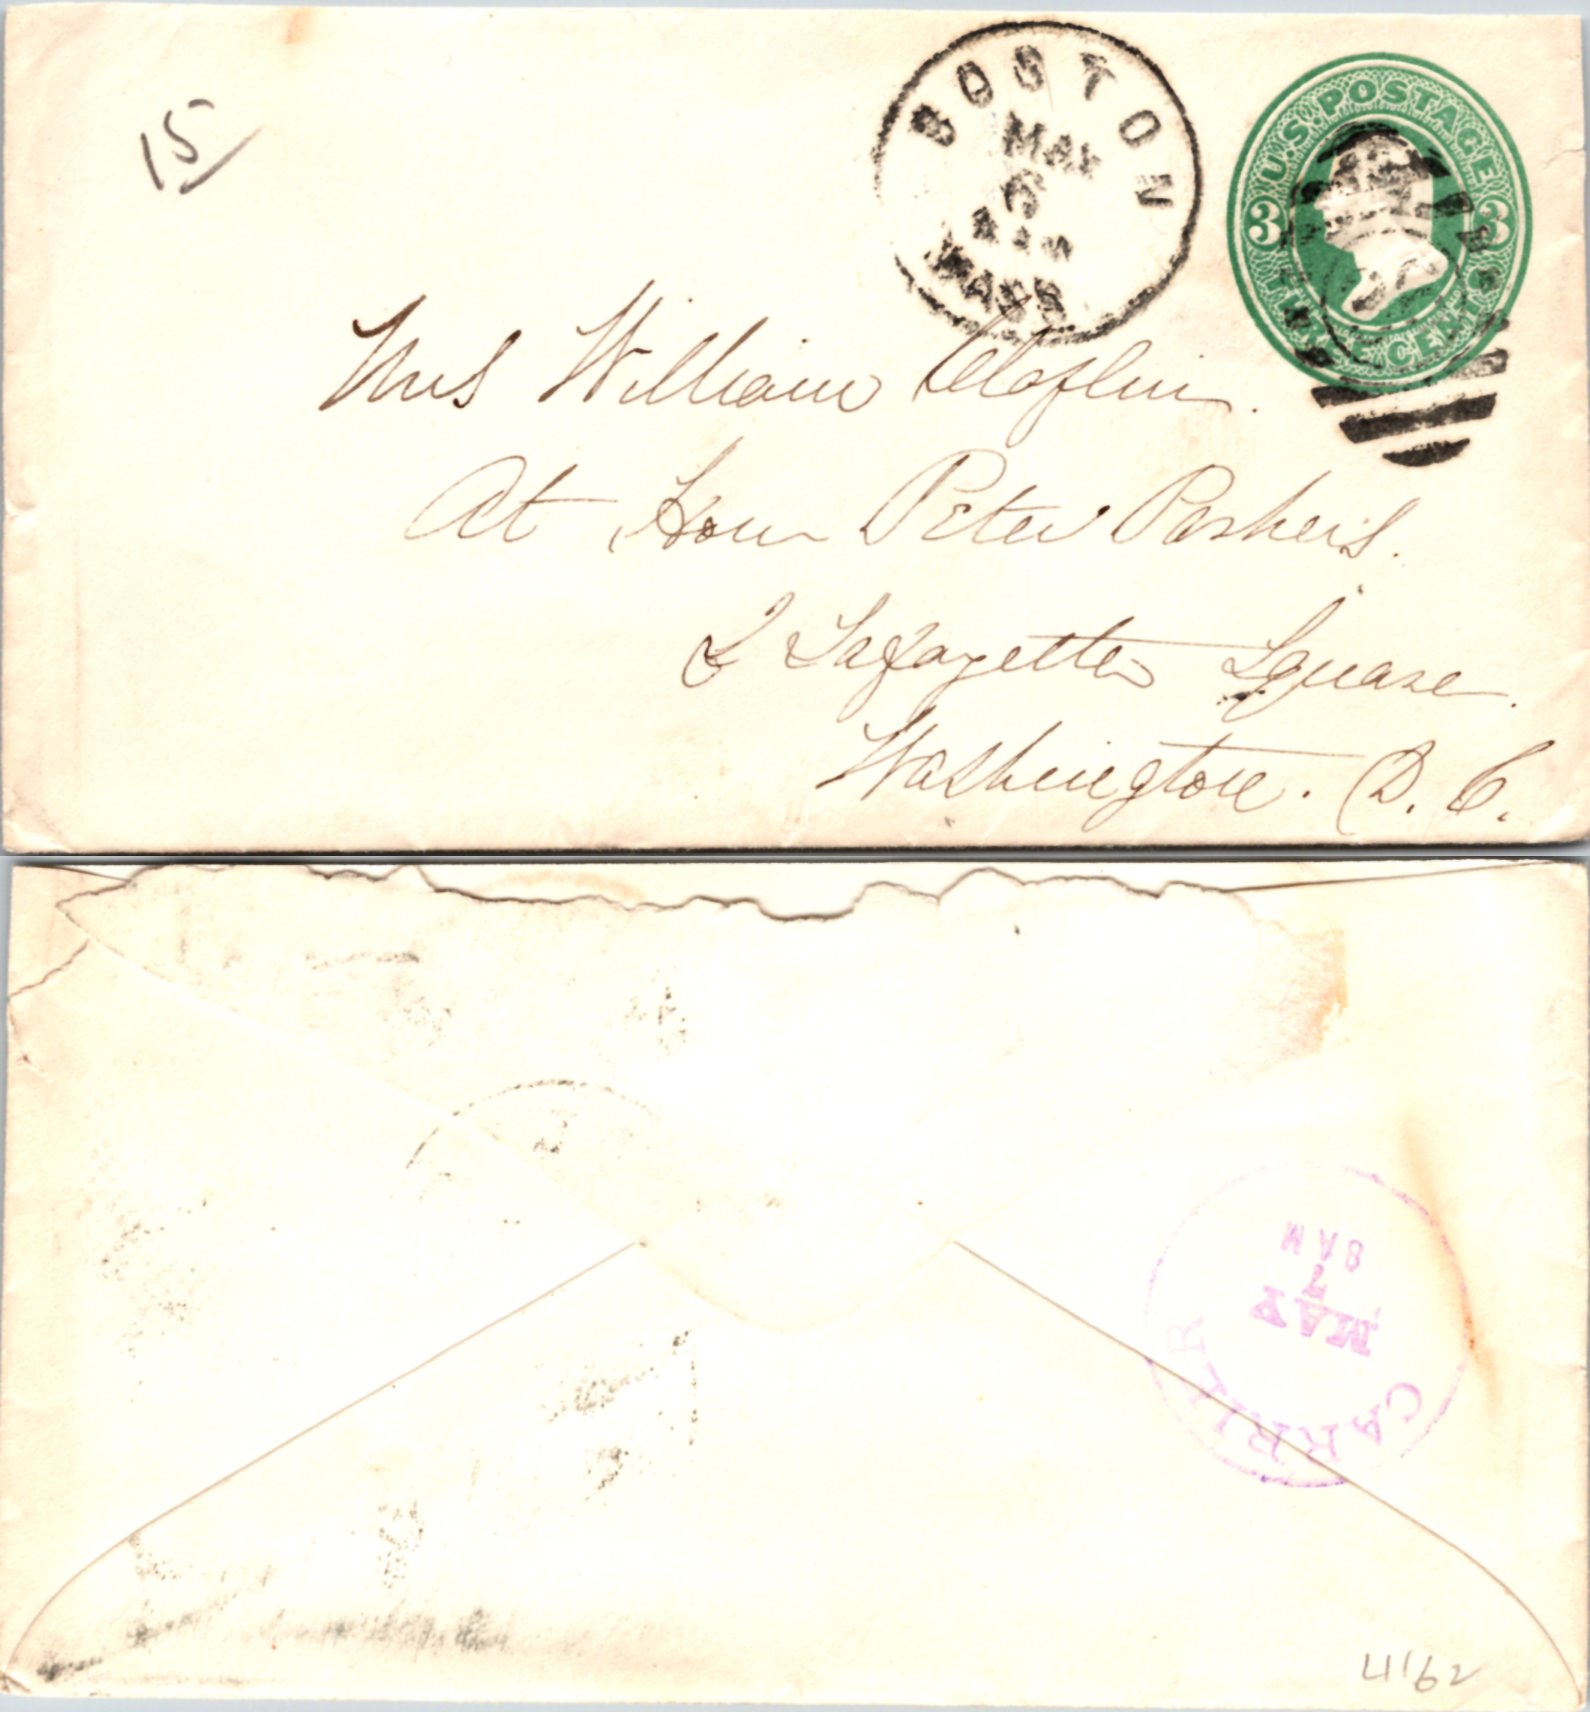 15
BOSTON
MAY
6
MASS
U.S. POSTAGE
3 3
THREE CENTS
Mrs William Claflin.
At Hon Peter Parkers.
2 Lafayette Square.
Washington. D. C.
CARRIER
MAY
7
8 AM
4162